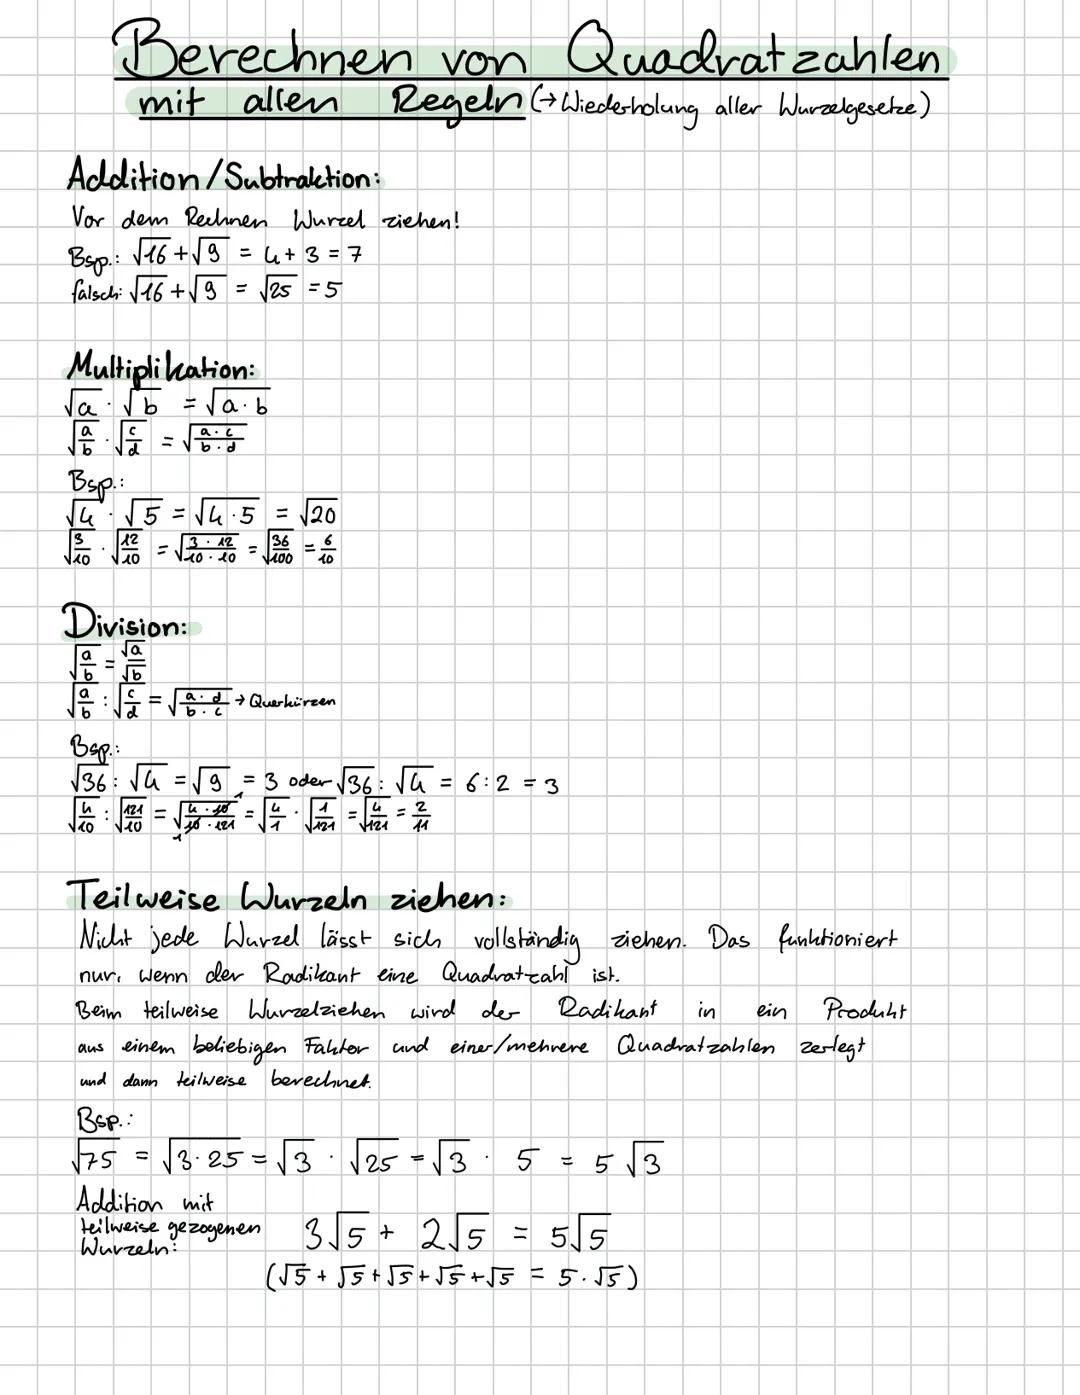 Berechnen von Quadratzahlen
mit allen Regeln (→ Wiederholung aller Wurzelgesetze)
Addition/Subtraktion:
Vor dem Rechnen Wurzel ziehen!
Bsp.: √16 + √9 = 4 + 3 = 7
falsch: √16 + √9 = √25 = 5
Multiplikation:
√a · √b = √(a · b)
√(a/b) · √(c/d) = √((a · c)/(b · d))
Bsp.:
√4 · √5 = √(4 · 5) = √20
√(3/10) · √(12/10) = √((3 · 12)/(10 · 10)) = √(36/100) = 6/10
Division:
√(a/b) = √a/√b
√(a/b) : √(c/d) = √((a · d)/(b · c)) → Querkürzen
Bsp.:
√36 : √4 = √9 = 3 oder √36 : √4 = 6 : 2 = 3
√(4/10) : √(121/10) = √((4 · 10 1)/(1 10 · 121)) = √(4/1) · √(1/121) = √(4/121) = 2/11
Teilweise Wurzeln ziehen:
Nicht jede Wurzel lässt sich vollständig ziehen. Das funktioniert
nur, wenn der Radikant eine Quadratzahl ist.
Beim teilweise Wurzelziehen wird der Radikant in ein Produkt
aus einem beliebigen Faktor und einer/mehrere Quadratzahlen zerlegt
und dann teilweise berechnet.
Bsp.:
√75 = √(3 · 25) = √3 · √25 = √3 · 5 = 5 √3
Addition mit
teilweise gezogenen
Wurzeln:
3√5 + 2√5 = 5√5
(√5 + √5 + √5 + √5 + √5 = 5 · √5)